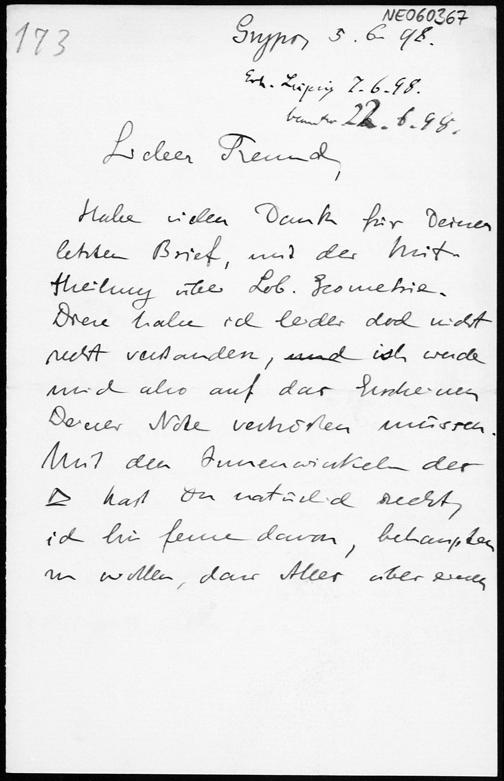 NEO60367
173
Gryps, 5. 6. 98.
Erh. Leipzig 7.6.98.
beantw. 22.6.98.
Lieber Freund,
Habe vielen Dank für Deinen
letzten Brief, und der Mit-
theilung über Lob. Geometrie.
Diese habe ich leider doch nicht
recht verstanden, und ich werde
mich also auf das Erscheinen
Deiner Note vertrösten müssen.
Mit den Innenwinkeln der
△ hast Du natürlich recht,
ich bin ferne davon, behaupten
zu wollen, dass Alles über einen